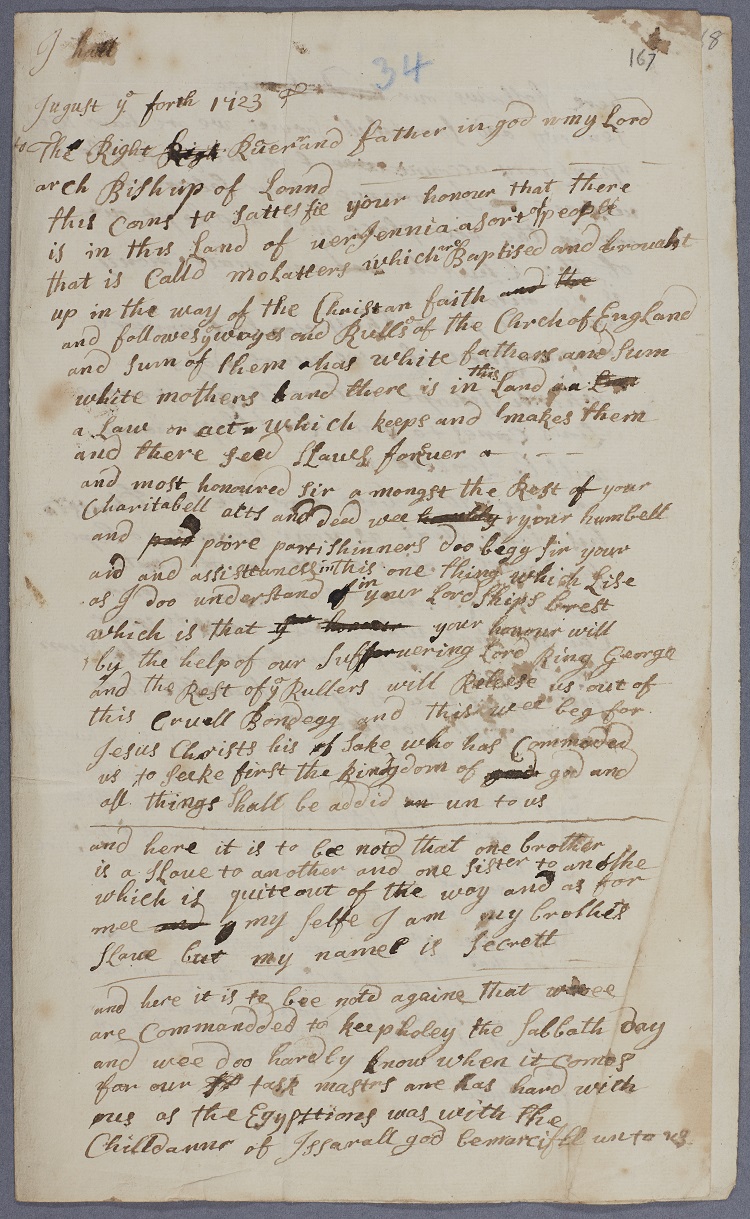 J hall
34
167
68
August yᵉ forth 1723
to The Right Rūerrand father in god my Lord
arch Bishup of Lonnd
this coms to sattesfie your honour that there
is in this Land of verJennia a sort of people
that is Calld molatters which are Baptised and brouaht
up in the way of the Christan faith and the
and followes yᵉ wayes and Rulles of the Chrch of England
and sum of them has white fathers and sum
white mothers and there is in this Land
a Law or act which keeps and makes them
and there seed slaves forever
and most honoured sir a mongst the Rest of your
Charitabell acts and deed wee your humbell
and poore parishinners doo begg Sir your
aid and assisttancss in this one thing which Lise
as J doo understand in your LordShips brest
which is that yᵉ honour your honour will
by the help of our Suffervering Lord King George
and the Rest of yᵉ Rullers will Releese us out of
this Cruell Bondegg and this wee beg for
Jesus Christs his Sake who has Commoded
us to seeke first the kingdom of god and
all things shall be addid un to us
and here it is to bee notd that one brother
is a Slave to another and one Sister to an othe
which is quite out of the way and as for
mee my selfe J am my brothes
Slave but my name is Secrett
and here it is to bee notd againe that wee
are Commandded to keep holey the Sabbath day
and wee doo hardly know when it comes
for our task mastrs are has hard with
us as the Egypttions was with the
Chilldann of Issarall god be marcifll unto us